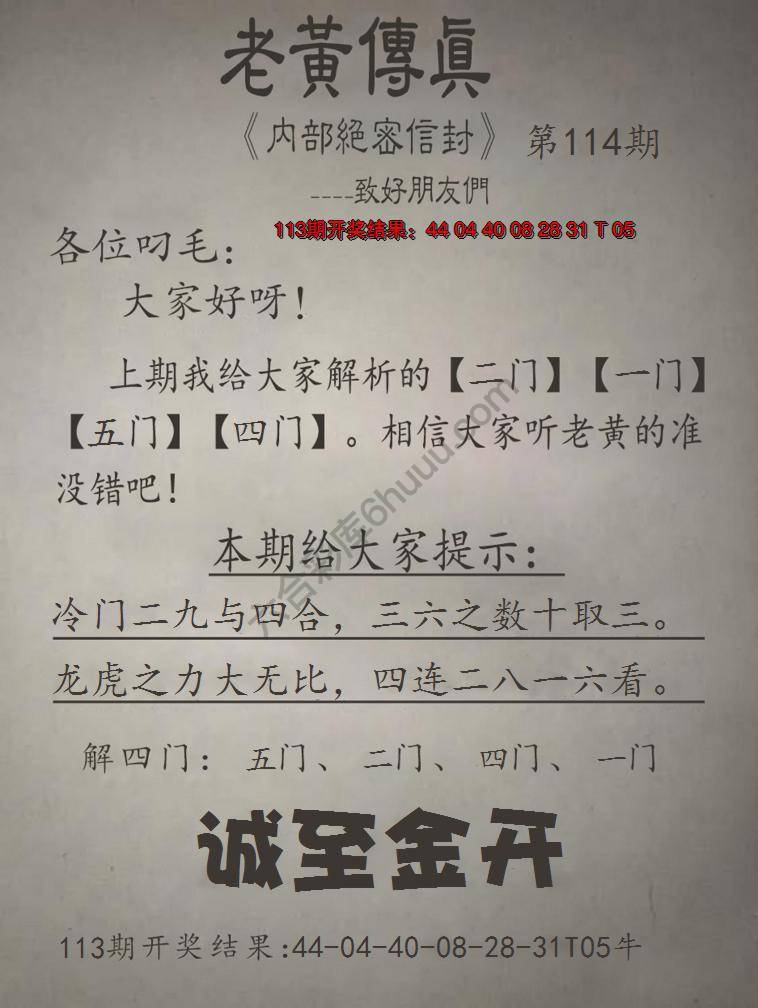 老黃傳眞
《内部絕密信封》 第114期
----致好朋友們
113期开奖结果：44 04 40 08 28 31 T 05
各位叼毛：
大家好呀！
上期我给大家解析的【二门】【一门】
【五门】【四门】。相信大家听老黄的准
没错吧！
本期给大家提示：
冷门二九与四合，三六之数十取三。
龙虎之力大无比，四连二八一六看。
解四门： 五门、 二门、 四门、 一门
诚至金开
113期开奖结果:44-04-40-08-28-31T05牛
六合彩库6huuu.com